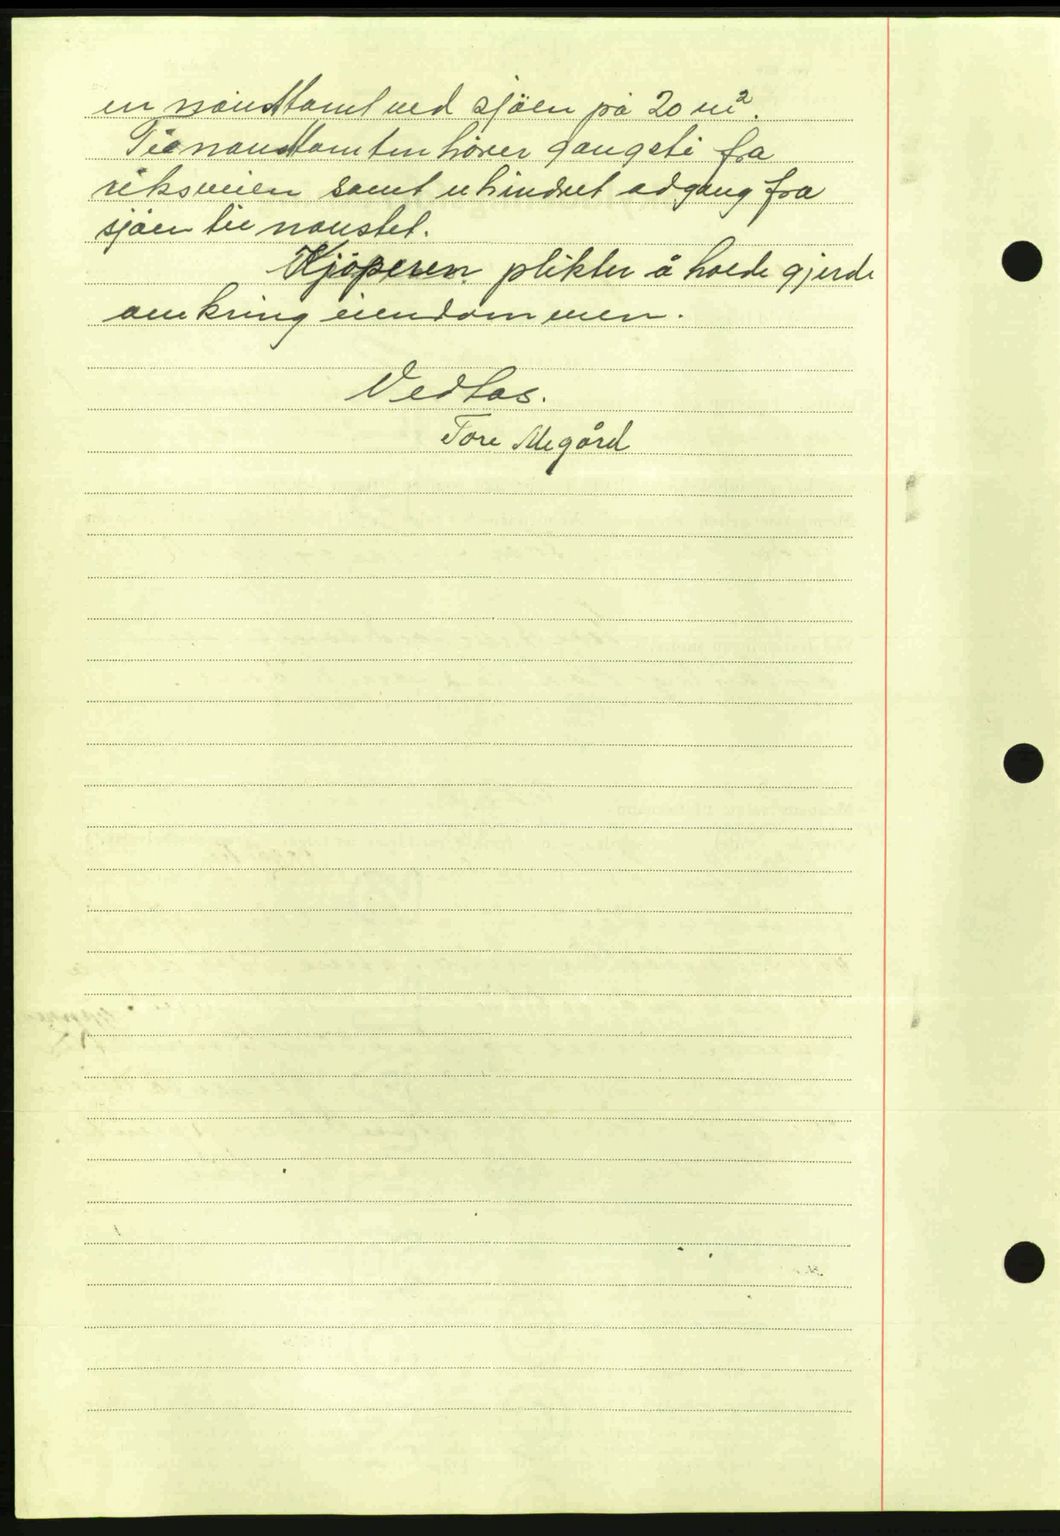 en nausttomt ved sjöen på 20 m².
Til nausttomten hörer gangsti fra
riksveien samt uhindret adgang fra
sjöen til naustet.
Kjöperen plikter å holde gjerde
omkring eiendommen.
Vedtas.
Tore Megård